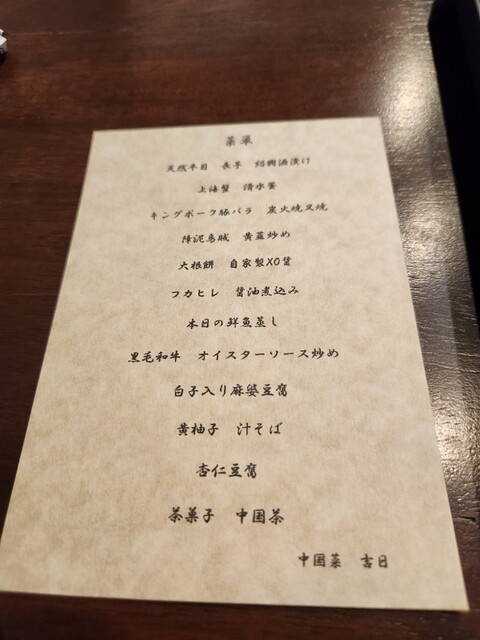 菜単
天然平目　長芋　紹興酒漬け
上海蟹　清水蒸
キングポーク豚バラ　炭火焼叉焼
障泥烏賊　黄韮炒め
大根餅　自家製XO醤
フカヒレ　醤油煮込み
本日の鮮魚蒸し
黒毛和牛　オイスターソース炒め
白子入り麻婆豆腐
黄柚子　汁そば
杏仁豆腐
茶菓子　中国茶
中国菜　吉日